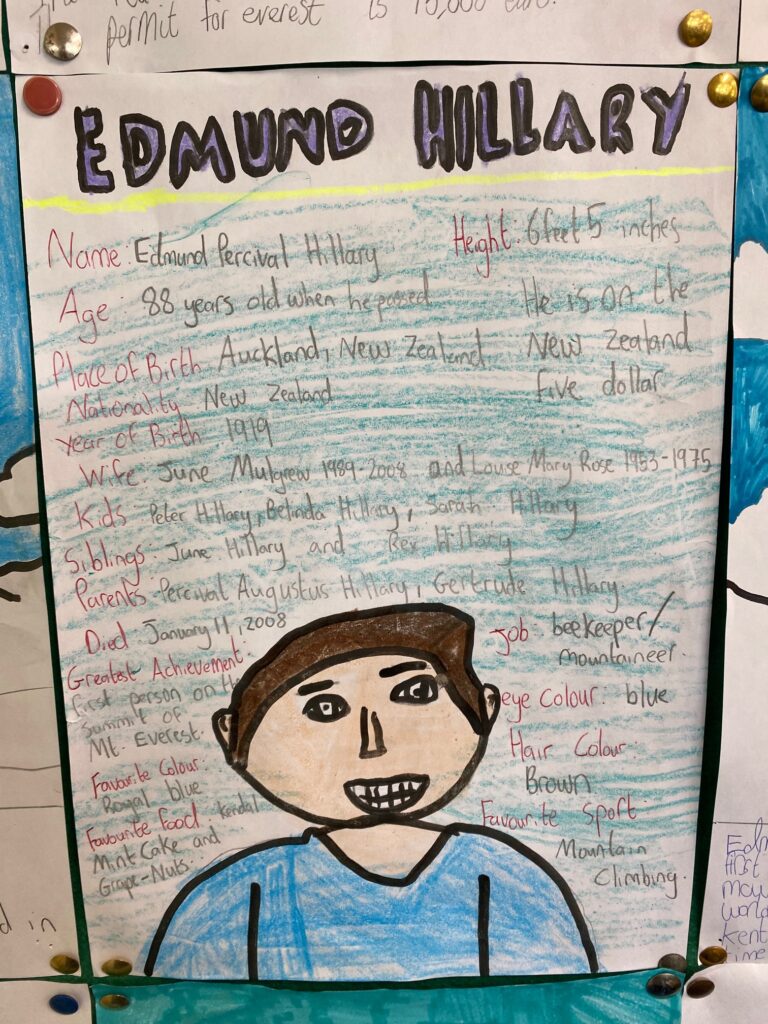 permit for everest is 15,000 euro.
EDMUND HILLARY
Name: Edmund Percival Hillary
Height: 6 feet 5 inches
Age: 88 years old when he passed
He is on the
New Zealand
five dollar
Place of Birth Auckland, New Zealand
Nationality New Zealand
Year of Birth 1919
Wife: June Mulgrew 1989-2008 and Louise Mary Rose 1953-1975
Kids: Peter Hillary, Belinda Hillary, Sarah Hillary
Siblings: June Hillary and Rex Hillary
Parents Percival Augustus Hillary, Gertrude Hillary
Died January 11, 2008
Greatest Achievement:
first person on the
summit of
Mt. Everest.
Favourite Colour
Royal blue
Favourite food Kendal
Mint Cake and
Grape-Nuts.
Job beekeeper/
mountaineer.
eye Colour: blue
Hair Colour:
Brown
Favourite Sport
Mountain
Climbing.
in
Kent
time